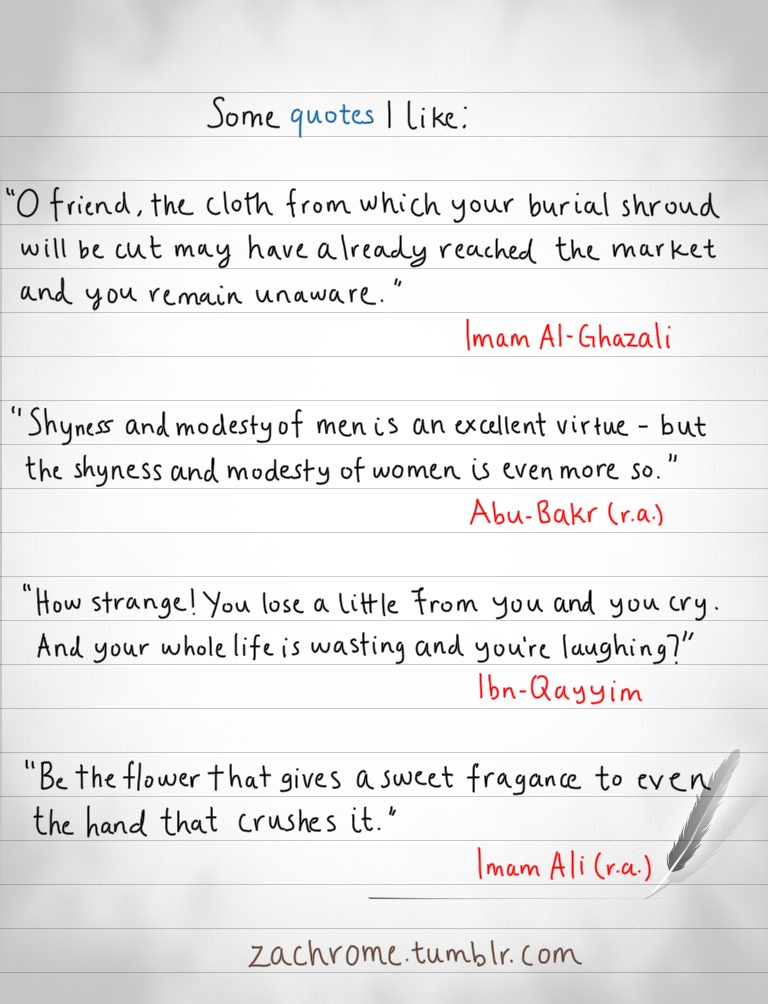 Some quotes I like:
"O friend, the cloth from which your burial shroud
will be cut may have already reached the market
and you remain unaware."
Imam Al-Ghazali
"Shyness and modesty of men is an excellent virtue - but
the shyness and modesty of women is even more so."
Abu-Bakr (r.a.)
"How strange! You lose a little from you and you cry.
And your whole life is wasting and you're laughing?"
Ibn-Qayyim
"Be the flower that gives a sweet fragance to even
the hand that crushes it."
Imam Ali (r.a.)
zachrome.tumblr.com